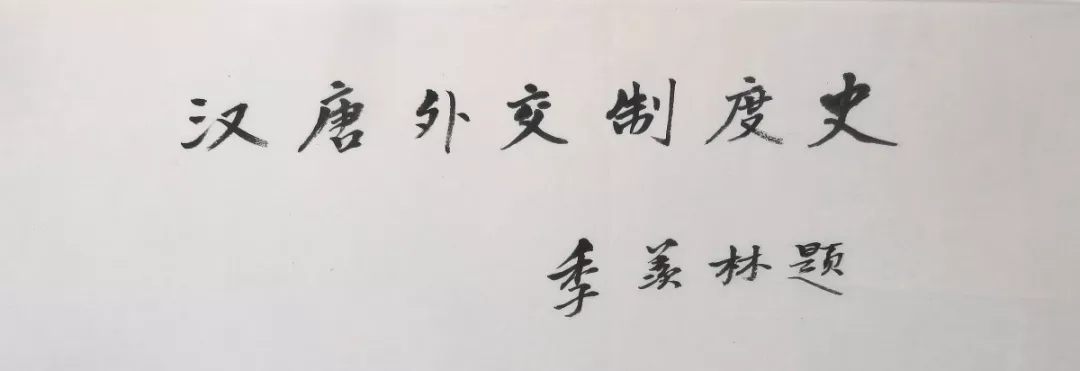 汉唐外交制度史
季羡林题